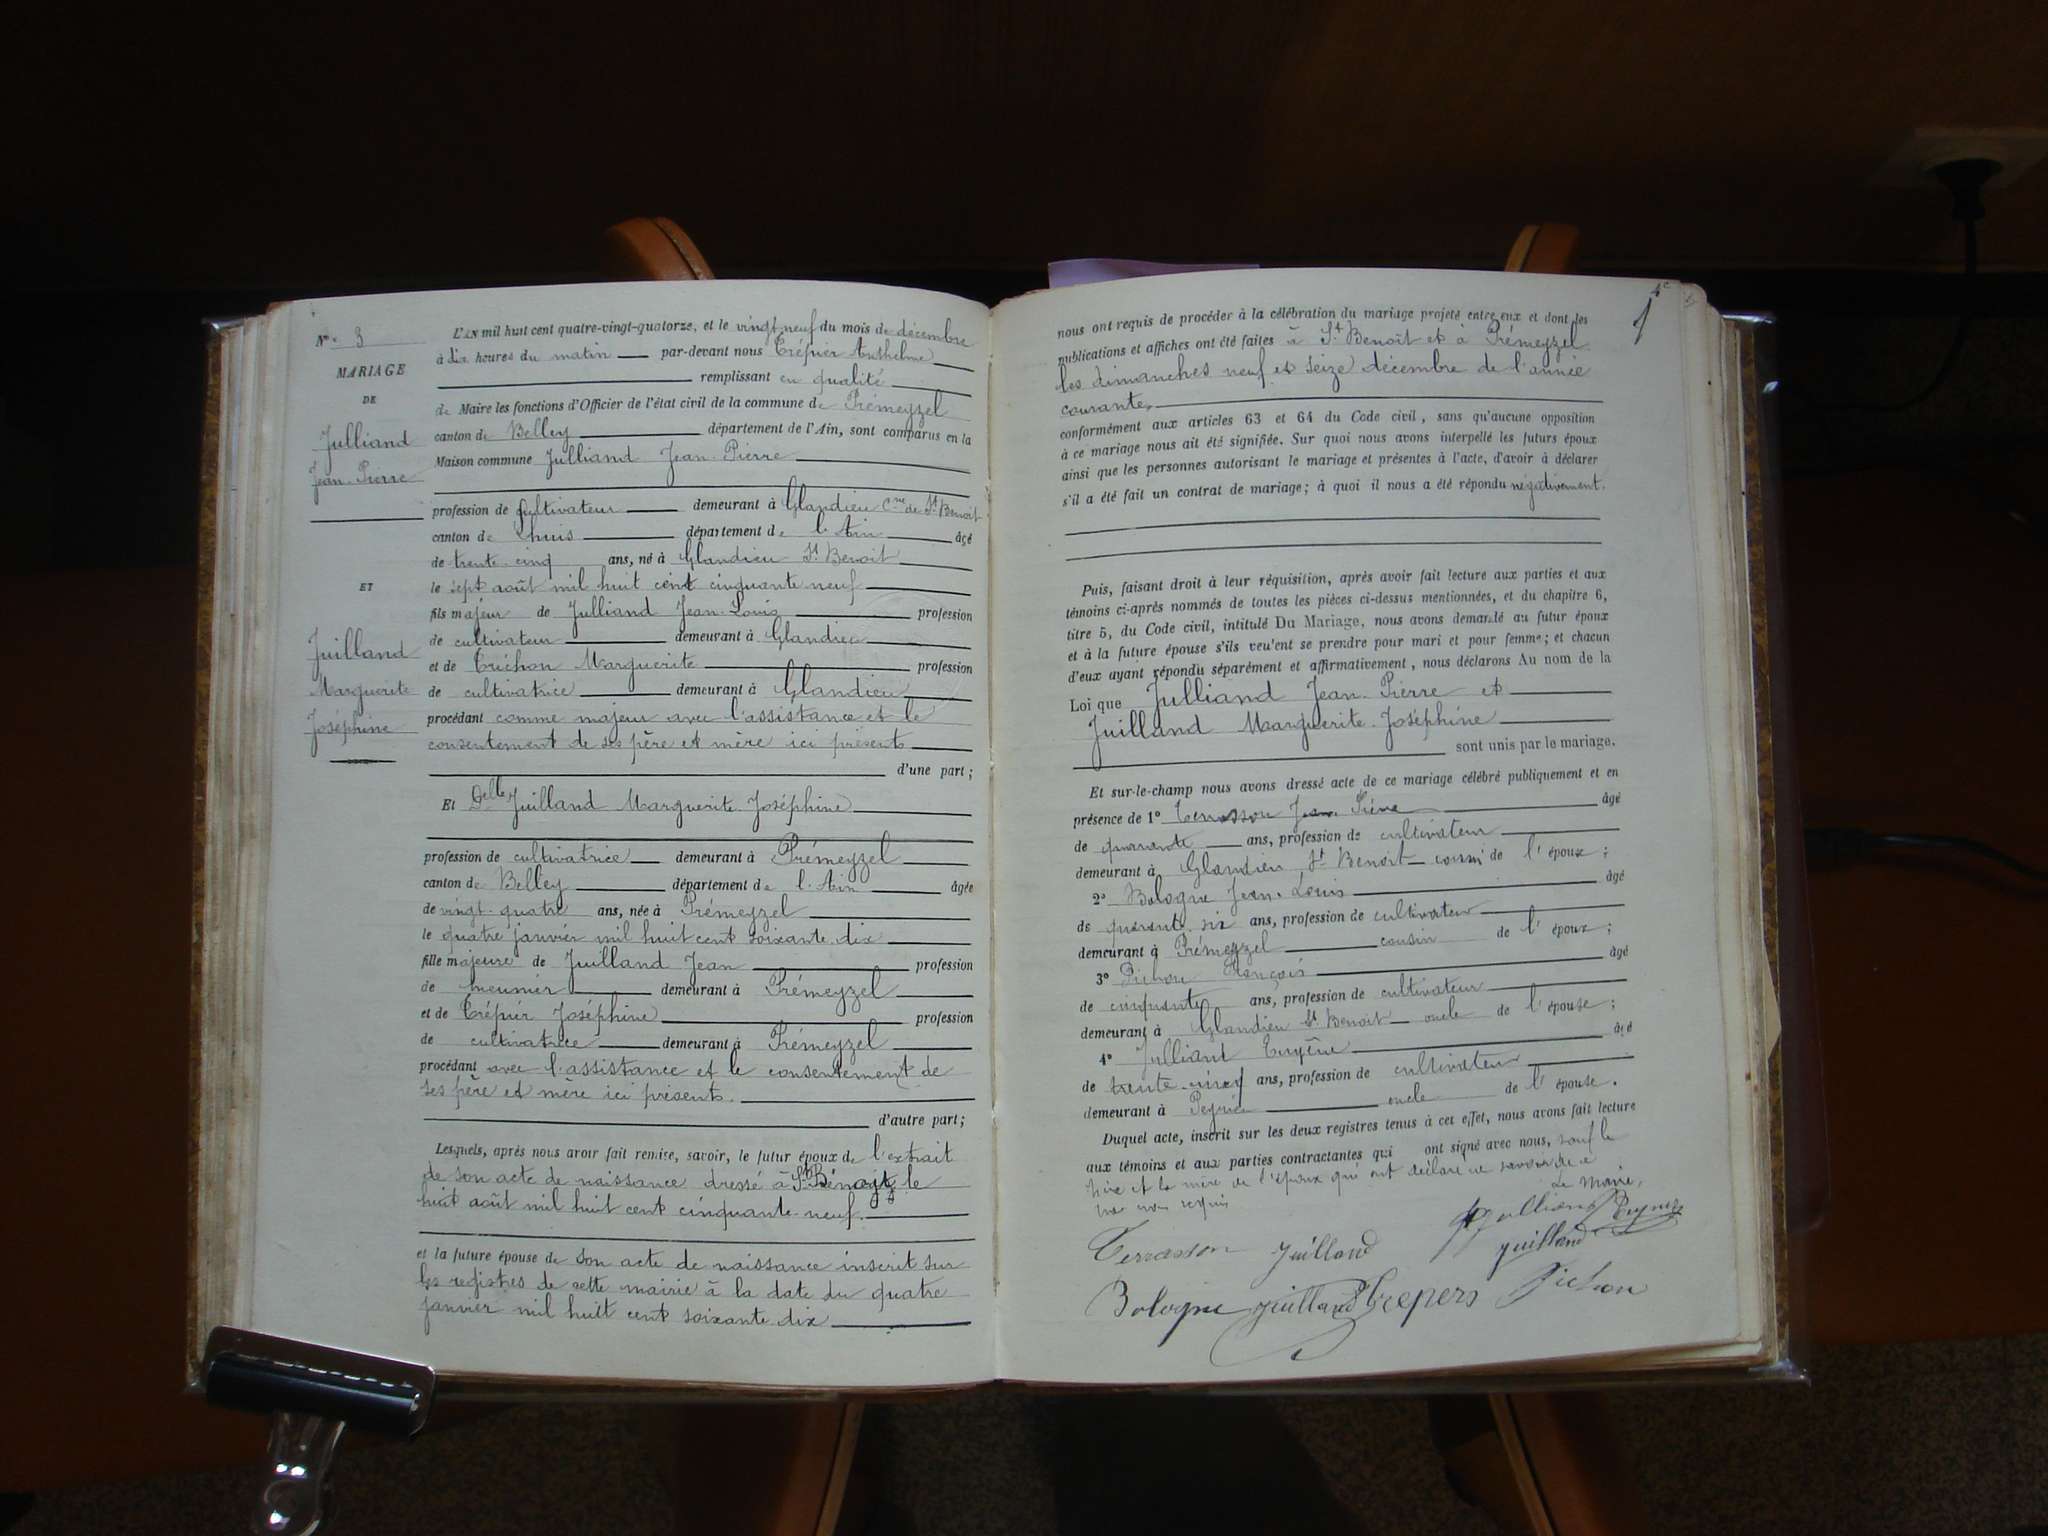 N° 3
MARIAGE
DE
Julliand
Jean-Pierre
ET
Juilland
Marguerite
Joséphine
L'AN mil huit cent quatre-vingt-quatorze, et le vingt-neuf du mois de décembre
à dix heures du matin par-devant nous Trépier Anthelme
remplissant en qualité
de Maire les fonctions d'Officier de l'état civil de la commune de Prémeyzel
canton de Belley département de l'Ain, sont comparus en la
Maison commune Julliand Jean-Pierre
profession de cultivateur demeurant à Glandieu Cne de St Benoit
canton de Lhuis département de l'Ain âgé
de trente-cinq ans, né à Glandieu St Benoit
le sept août mil huit cent cinquante neuf
fils majeur de Julliand Jean-Louis profession
de cultivateur demeurant à Glandieu
et de Marguerite profession
de cultivatrice demeurant à Glandieu
procédant comme majeur avec l'assistance et le
consentement de ses père et mère ici présents
d'une part;
Et Delle Juilland Marguerite Joséphine
profession de cultivatrice demeurant à Prémeyzel
canton de Belley département de l'Ain âgée
de vingt-quatre ans, née à Prémeyzel
le quatre janvier mil huit cent soixante-dix
fille majeure de Juilland Jean profession
de meunier demeurant à Prémeyzel
et de Trépier Joséphine profession
de cultivatrice demeurant à Prémeyzel
procédant avec l'assistance et le consentement de
ses père et mère ici présents.
d'autre part;
Lesquels, après nous avoir fait remise, savoir, le futur époux de l'extrait
de son acte de naissance dressé à St Bénoit le
huit août mil huit cent cinquante-neuf.
et la future épouse de son acte de naissance inscrit sur
les registres de cette mairie à la date du quatre
janvier mil huit cent soixante dix
nous ont requis de procéder à la célébration du mariage projeté entre eux et dont les
publications et affiches ont été faites à St Benoît et à Prémeyzel
les dimanches neuf et seize décembre de l'année
courante,
conformément aux articles 63 et 64 du Code civil, sans qu'aucune opposition
à ce mariage nous ait été signifiée. Sur quoi nous avons interpellé les futurs époux
ainsi que les personnes autorisant le mariage et présentes à l'acte, d'avoir à déclarer
s'il a été fait un contrat de mariage; à quoi il nous a été répondu négativement.
Puis, faisant droit à leur réquisition, après avoir fait lecture aux parties et aux
témoins ci-après nommés de toutes les pièces ci-dessus mentionnées, et du chapitre 6,
titre 5, du Code civil, intitulé Du Mariage, nous avons demandé au futur époux
et à la future épouse s'ils veulent se prendre pour mari et pour femme; et chacun
d'eux ayant répondu séparément et affirmativement, nous déclarons Au nom de la
Loi que Julliand Jean-Pierre et
Juilland Marguerite Joséphine
sont unis par le mariage.
Et sur-le-champ nous avons dressé acte de ce mariage célébré publiquement et en
présence de 1° Terrasson Jean Pierre âgé
de quarante ans, profession de cultivateur
demeurant à Glandieu St Benoit cousin de l'époux;
2° Bologne Jean-Louis âgé
de quarante six ans, profession de cultivateur
demeurant à Prémeyzel cousin de l'époux;
3° Pichon François âgé
de cinquante ans, profession de cultivateur
demeurant à Glandieu St Benoit oncle de l'épouse;
4° Julliant Eugène âgé
de trente-neuf ans, profession de cultivateur
demeurant à Peyrieu oncle de l'épouse.
Duquel acte, inscrit sur les deux registres tenus à cet effet, nous avons fait lecture
aux témoins et aux parties contractantes qui ont signé avec nous, sauf le
père et la mère de l'époux qui ont déclaré ne savoir de ce
Le Maire,
Terrasson Juilland Julliand Eugène
Juilland
Bologne Juilland Trepers Pichon